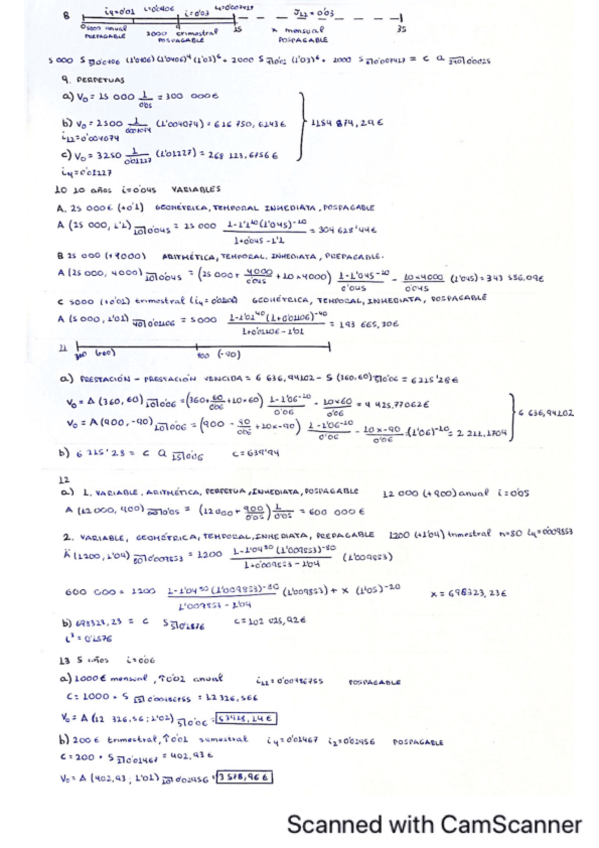 8 i4=0'01 i=0'0406 i=0'03 J12=0'03
0 15 35
5000 anual PREPAGABLE 2000 trimestral POSPAGABLE x mensual POSPAGABLE
9. PERPETUAS
a) V0 = 15 000 1/0'05 = 300 000€
b) V0 = 2500 1/0'004074 (1'004074) = 616 750, 6143€
i12=0'004074
1184 874,29€
c) V0 = 3250 1/0'01227 (1'01227) = 268 123,6756€
i4=0'01227
10 10 años i=0'045 VARIABLES
A. 25 000€ (+0'1) GEOMÉTRICA, TEMPORAL INMEDIATA, POSPAGABLE
A (25 000, 1'1) 10|0'045 = 25 000 1-1'1^10 (1'045)^-10 / 1+0'045-1'1 = 304 628'44€
B 25 000 (+4000) ARITMÉTICA, TEMPORAL, INMEDIATA, PREPAGABLE.
A (25 000, 4000) 10|0'045 = (25 000 + 4000/0'045 + 10×4000) 1-1'045^-10/0'045 - 10×4000/0'045 (1'045) = 343 556.09€
C 5000 (+0'01) trimestral GEOMÉTRICA, TEMPORAL, INMEDIATA, POSPAGABLE
A (5 000, 1'01) 40|0'01106 = 5000 1-1'01^40 (1+0'01106)^-40 / 1+0'01106-1'01 = 193 665,30€
11 360 (+60) 900 (-90)
a) PRESTACIÓN - PRESTACIÓN VENCIDA = 6 636,94102 - S (360,60) 5|0'06 = 6215'28€
V0 = A (360, 60) 10|0'06 = (360 + 60/0'06 + 10×60) 1-1'06^-10/0'06 - 10×60/0'06 = 4 425,77062€
6 636,94102
V0 = A (900, -90) 10|0'06 = (900 - 90/0'06 + 10×-90) 1-1'06^-10/0'06 - 10×-90/0'06 (1'06)^-10 = 2 211,1704
b) 6 215'28 = c a 15|0'06 c=639'94
12
a) 1. VARIABLE, ARITMÉTICA, PERPETUA, INMEDIATA, POSPAGABLE 12 000 (+900) anual i=0'05
A (12 000, 900) ∞|0'05 = (12 000 + 900/0'05) 1/0'05 = 600 000€
2. VARIABLE, GEOMÉTRICA, TEMPORAL, INMEDIATA, PREPAGABLE 1200 (+1'04) trimestral n=80 i4=0'009853
Ä (1200, 1'04) 80|0'009853 = 1200 1-1'04^80 (1'009853)^-80 / 1+0'009853-1'04 (1'009853)
600 000 = 1200 1-1'04^80 (1'009853)^-80 / 1'009853-1'04 (1'009853) + x (1'05)^-20 x = 698323,23€
b) 698323,23 = c S 5|0'1576 c=102 025,92€
i²=0'1576
13 5 años i=0'06
a) 1000€ mensual, ↑0'02 anual i12=0'00486755 POSPAGABLE
C = 1000 · S 12|0'00486755 = 12 326,56€
V0 = A (12 326,56; 1'02) 5|0'06 =
b) 200€ trimestral, ↑0'01 semestral i4=0'01467 i2=0'02956 POSPAGABLE
C = 200 · S 2|0'01467 = 402,93€
V0 = A (402,93; 1'01) 10|0'02956 = 3 578,96€
Scanned with CamScanner